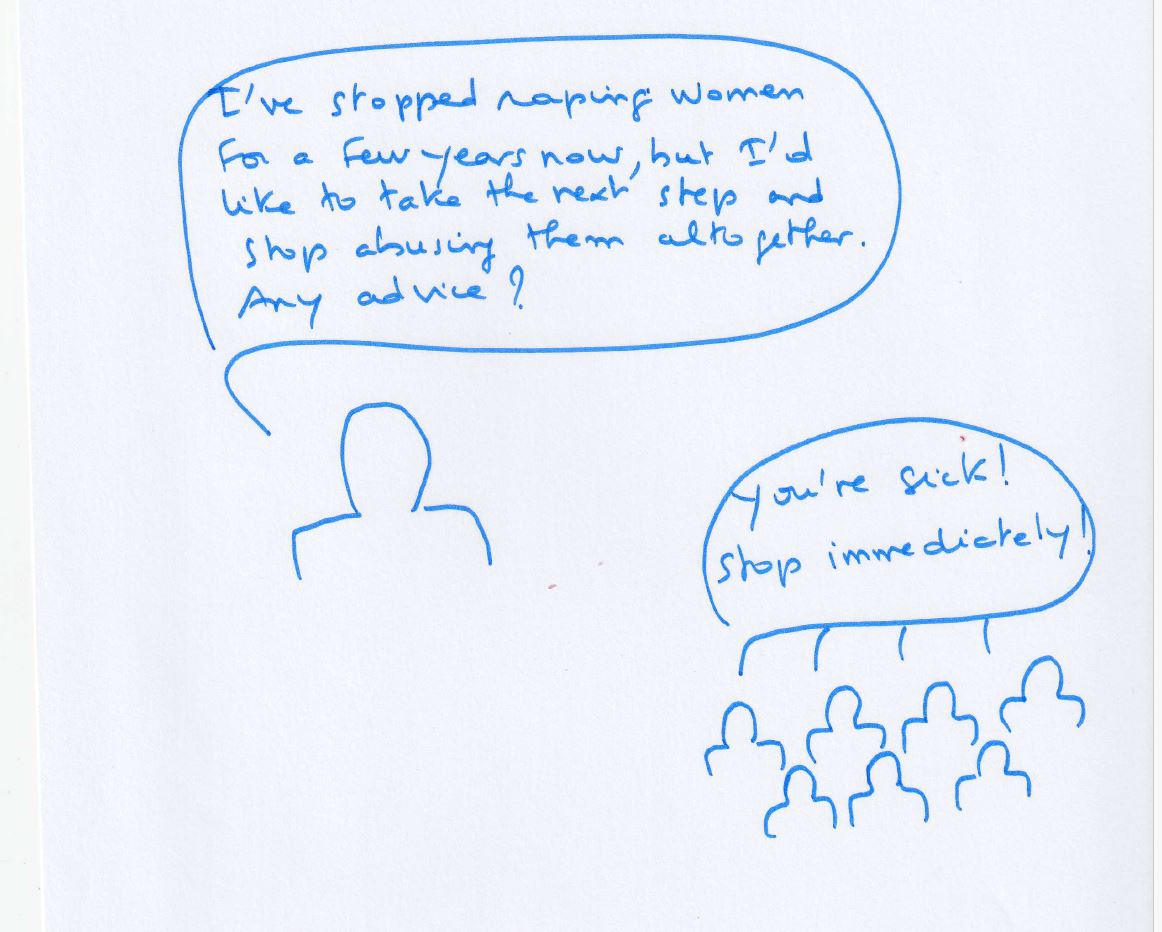 I've stopped raping women
For a few years now, but I'd
like to take the next step and
stop abusing them altogether.
Any advice?
You're sick!
Stop immediately!